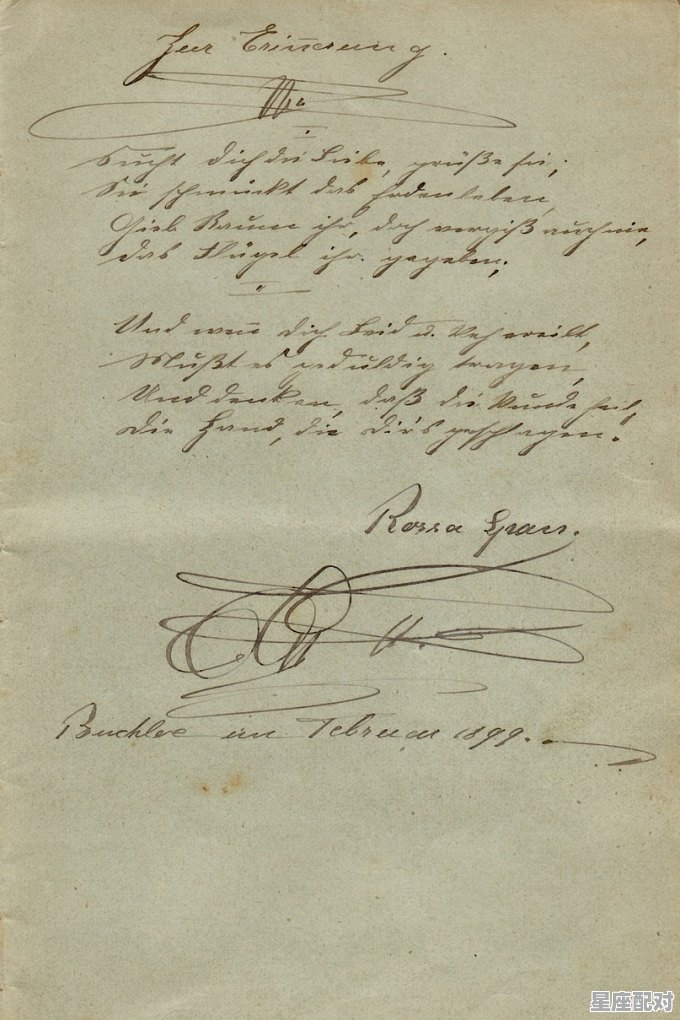 Zur Erinnerung.
Sucht dich die Liebe, grüße sie;
Sie schmückt das Erdenleben,
Gieb Raum ihr, doch vergiß auch nie,
das Flügel ihr gegeben;
Und weñ dich Leid u. Weh ereilt,
Mußt es geduldig tragen,
Und denken, daß die Wunde heilt,
die Hand, die dir's geschlagen.
Rossa
Buchloe im Februar 1899.
星座配对